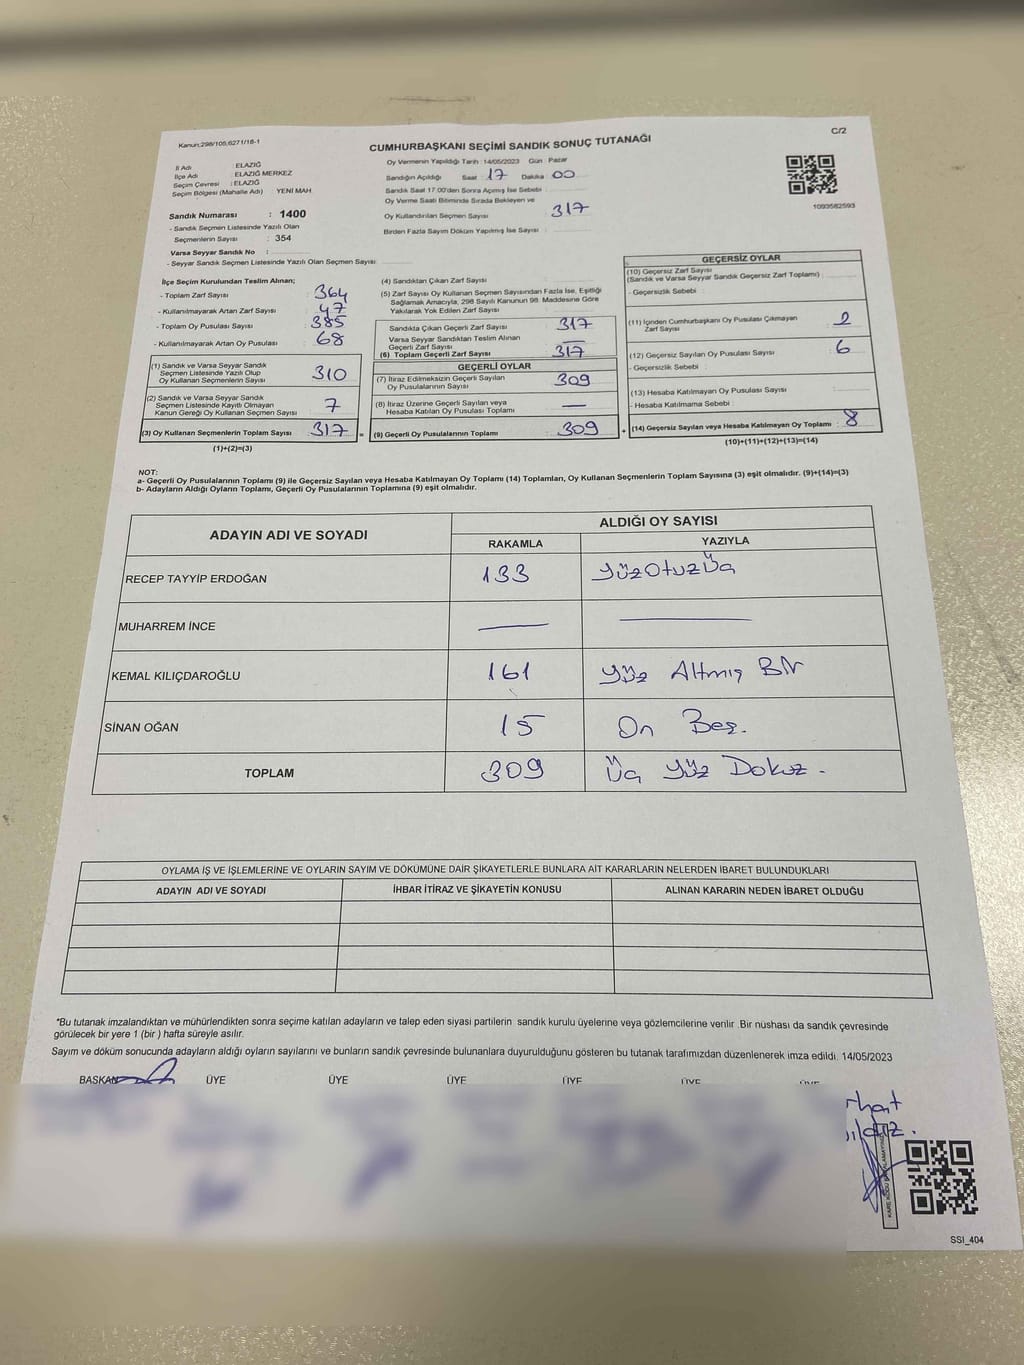 Kanun;298/105,6271/18-1
C/2
CUMHURBAŞKANI SEÇİMİ SANDIK SONUÇ TUTANAĞI
İl Adı : ELAZIĞ
İlçe Adı : ELAZIĞ MERKEZ
Seçim Çevresi : ELAZIĞ
Seçim Bölgesi (Mahalle Adı) : YENİ MAH
Oy Vermenin Yapıldığı Tarih :14/05/2023 Gün : Pazar
Sandığın Açıldığı Saat : 17 Dakika : 00
Sandık Saat 17.00'den Sonra Açılmış İse Sebebi :
Oy Verme Saati Bitiminde Sırada Bekleyen ve
Oy Kullandırılan Seçmen Sayısı : 317
Birden Fazla Sayım Döküm Yapılmış İse Sayısı :
1093582593
Sandık Numarası : 1400
- Sandık Seçmen Listesinde Yazılı Olan
Seçmenlerin Sayısı : 354
Varsa Seyyar Sandık No :
- Seyyar Sandık Seçmen Listesinde Yazılı Olan Seçmen Sayısı:
İlçe Seçim Kurulundan Teslim Alınan;
- Toplam Zarf Sayısı : 364
- Kullanılmayarak Artan Zarf Sayısı : 47
- Toplam Oy Pusulası Sayısı : 385
- Kullanılmayarak Artan Oy Pusulası : 68
(1) Sandık ve Varsa Seyyar Sandık
Seçmen Listesinde Yazılı Olup
Oy Kullanan Seçmenlerin Sayısı : 310
(2) Sandık ve Varsa Seyyar Sandık
Seçmen Listesinde Kayıtlı Olmayan
Kanun Gereği Oy Kullanan Seçmen Sayısı : 7
(3) Oy Kullanan Seçmenlerin Toplam Sayısı : 317 =
(1)+(2)=(3)
(4) Sandıktan Çıkan Zarf Sayısı :
(5) Zarf Sayısı Oy Kullanan Seçmen Sayısından Fazla İse, Eşitliği
Sağlamak Amacıyla, 298 Sayılı Kanunun 98. Maddesine Göre
Yakılarak Yok Edilen Zarf Sayısı :
Sandıkta Çıkan Geçerli Zarf Sayısı : 317
Varsa Seyyar Sandıktan Teslim Alınan
Geçerli Zarf Sayısı : —
(6) Toplam Geçerli Zarf Sayısı : 317
GEÇERLİ OYLAR
(7) İtiraz Edilmeksizin Geçerli Sayılan
Oy Pusulalarının Sayısı : 309
(8) İtiraz Üzerine Geçerli Sayılan veya
Hesaba Katılan Oy Pusulası Toplamı : —
(9) Geçerli Oy Pusulalarının Toplamı : 309 +
GEÇERSİZ OYLAR
(10) Geçersiz Zarf Sayısı
(Sandık ve Varsa Seyyar Sandık Geçersiz Zarf Toplamı) :
- Geçersizlik Sebebi :
(11) İçinden Cumhurbaşkanı Oy Pusulası Çıkmayan
Zarf Sayısı : 2
(12) Geçersiz Sayılan Oy Pusulası Sayısı : 6
- Geçersizlik Sebebi :
(13) Hesaba Katılmayan Oy Pusulası Sayısı :
- Hesaba Katılmama Sebebi :
(14) Geçersiz Sayılan veya Hesaba Katılmayan Oy Toplamı : 8
(10)+(11)+(12)+(13)=(14)
NOT:
a- Geçerli Oy Pusulalarının Toplamı (9) ile Geçersiz Sayılan veya Hesaba Katılmayan Oy Toplamı (14) Toplamları, Oy Kullanan Seçmenlerin Toplam Sayısına (3) eşit olmalıdır. (9)+(14)=(3)
b- Adayların Aldığı Oyların Toplamı, Geçerli Oy Pusulalarının Toplamına (9) eşit olmalıdır.
ADAYIN ADI VE SOYADI
ALDIĞI OY SAYISI
RAKAMLA YAZIYLA
RECEP TAYYİP ERDOĞAN 133 Yüz Otuz Üç
MUHARREM İNCE — —
KEMAL KILIÇDAROĞLU 161 Yüz Altmış Bir
SİNAN OĞAN 15 On Beş.
TOPLAM 309 Üç Yüz Dokuz.
OYLAMA İŞ VE İŞLEMLERİNE VE OYLARIN SAYIM VE DÖKÜMÜNE DAİR ŞİKAYETLERLE BUNLARA AİT KARARLARIN NELERDEN İBARET BULUNDUKLARI
ADAYIN ADI VE SOYADI İHBAR İTİRAZ VE ŞİKAYETİN KONUSU ALINAN KARARIN NEDEN İBARET OLDUĞU
*Bu tutanak imzalandıktan ve mühürlendikten sonra seçime katılan adayların ve talep eden siyasi partilerin sandık kurulu üyelerine veya gözlemcilerine verilir .Bir nüshası da sandık çevresinde
görülecek bir yere 1 (bir ) hafta süreyle asılır.
Sayım ve döküm sonucunda adayların aldığı oyların sayılarını ve bunların sandık çevresinde bulunanlara duyurulduğunu gösteren bu tutanak tarafımızdan düzenlenerek imza edildi. 14/05/2023
BAŞKAN ÜYE ÜYE ÜYE ÜYE ÜYE ÜYE
SSI_404